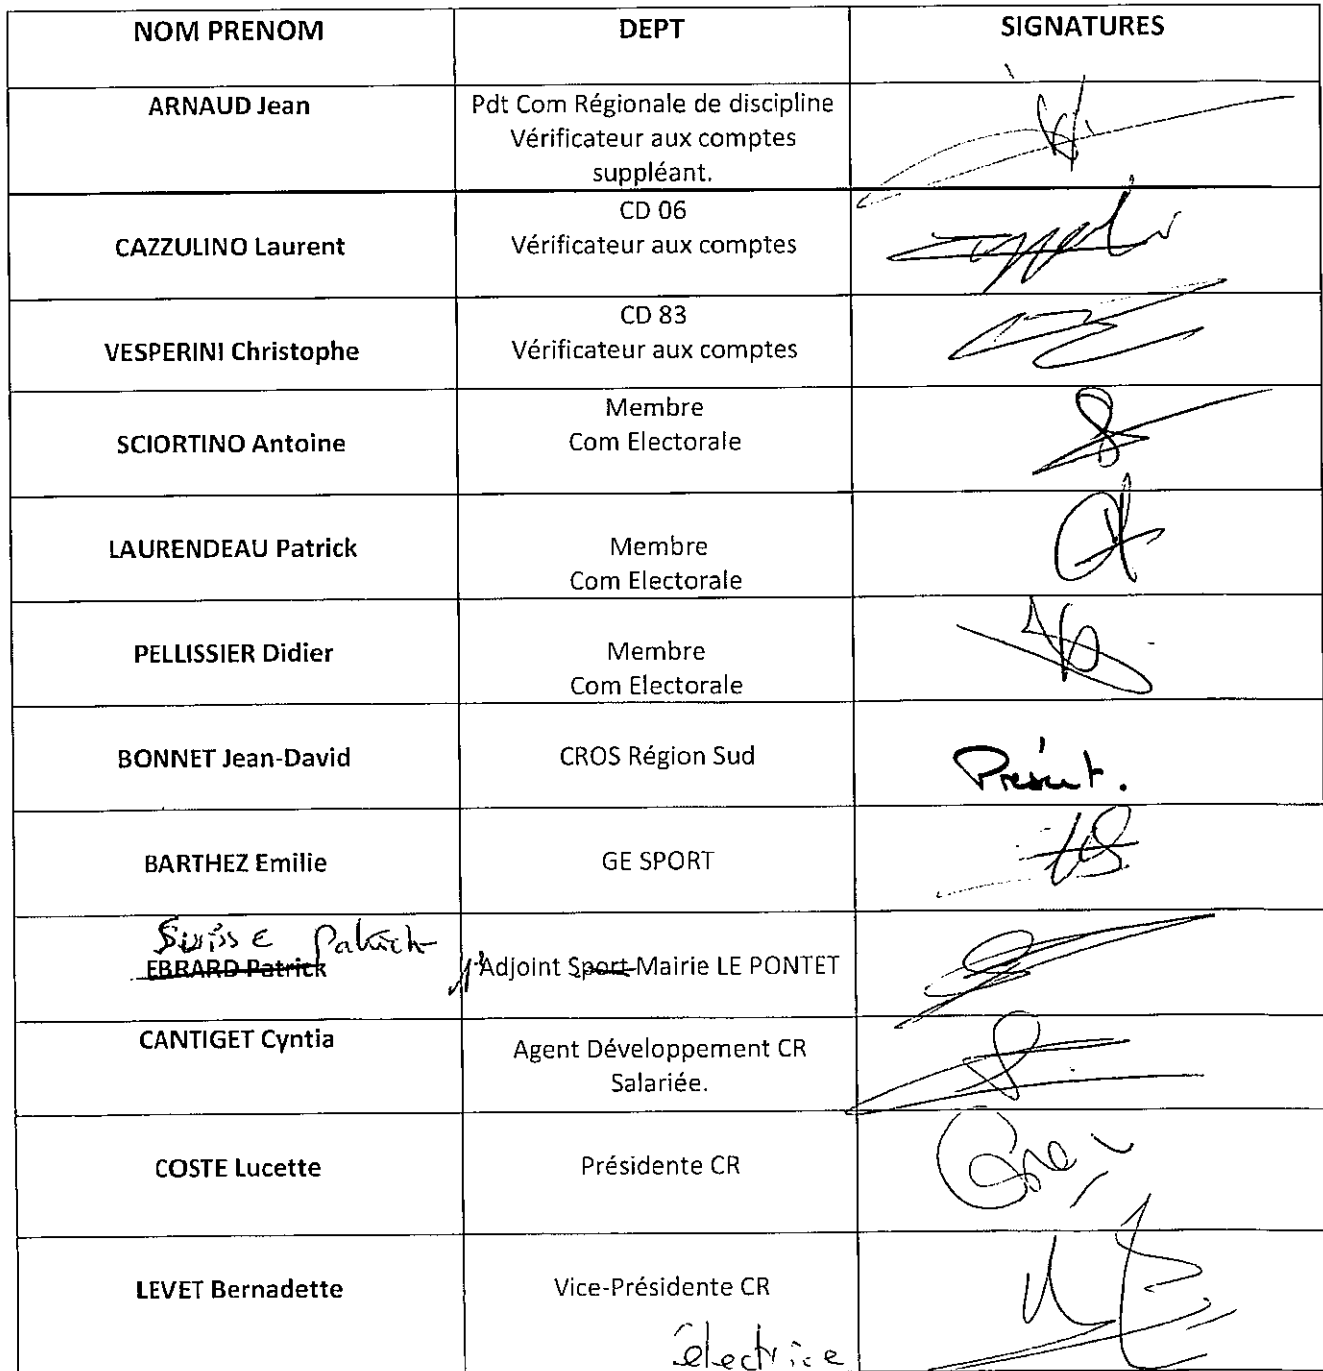 NOM PRENOM DEPT SIGNATURES
ARNAUD Jean Pdt Com Régionale de discipline
Vérificateur aux comptes
suppléant.
CD 06
CAZZULINO Laurent Vérificateur aux comptes
CD 83
VESPERINI Christophe Vérificateur aux comptes
Membre
SCIORTINO Antoine Com Electorale
LAURENDEAU Patrick Membre
Com Electorale
PELLISSIER Didier Membre
Com Electorale
BONNET Jean-David CROS Région Sud Présent.
BARTHEZ Emilie GE SPORT
Suisse Patrick
EBRARD Patrick Adjoint Sport Mairie LE PONTET
CANTIGET Cyntia Agent Développement CR
Salariée.
COSTE Lucette Présidente CR
LEVET Bernadette Vice-Présidente CR
électrice